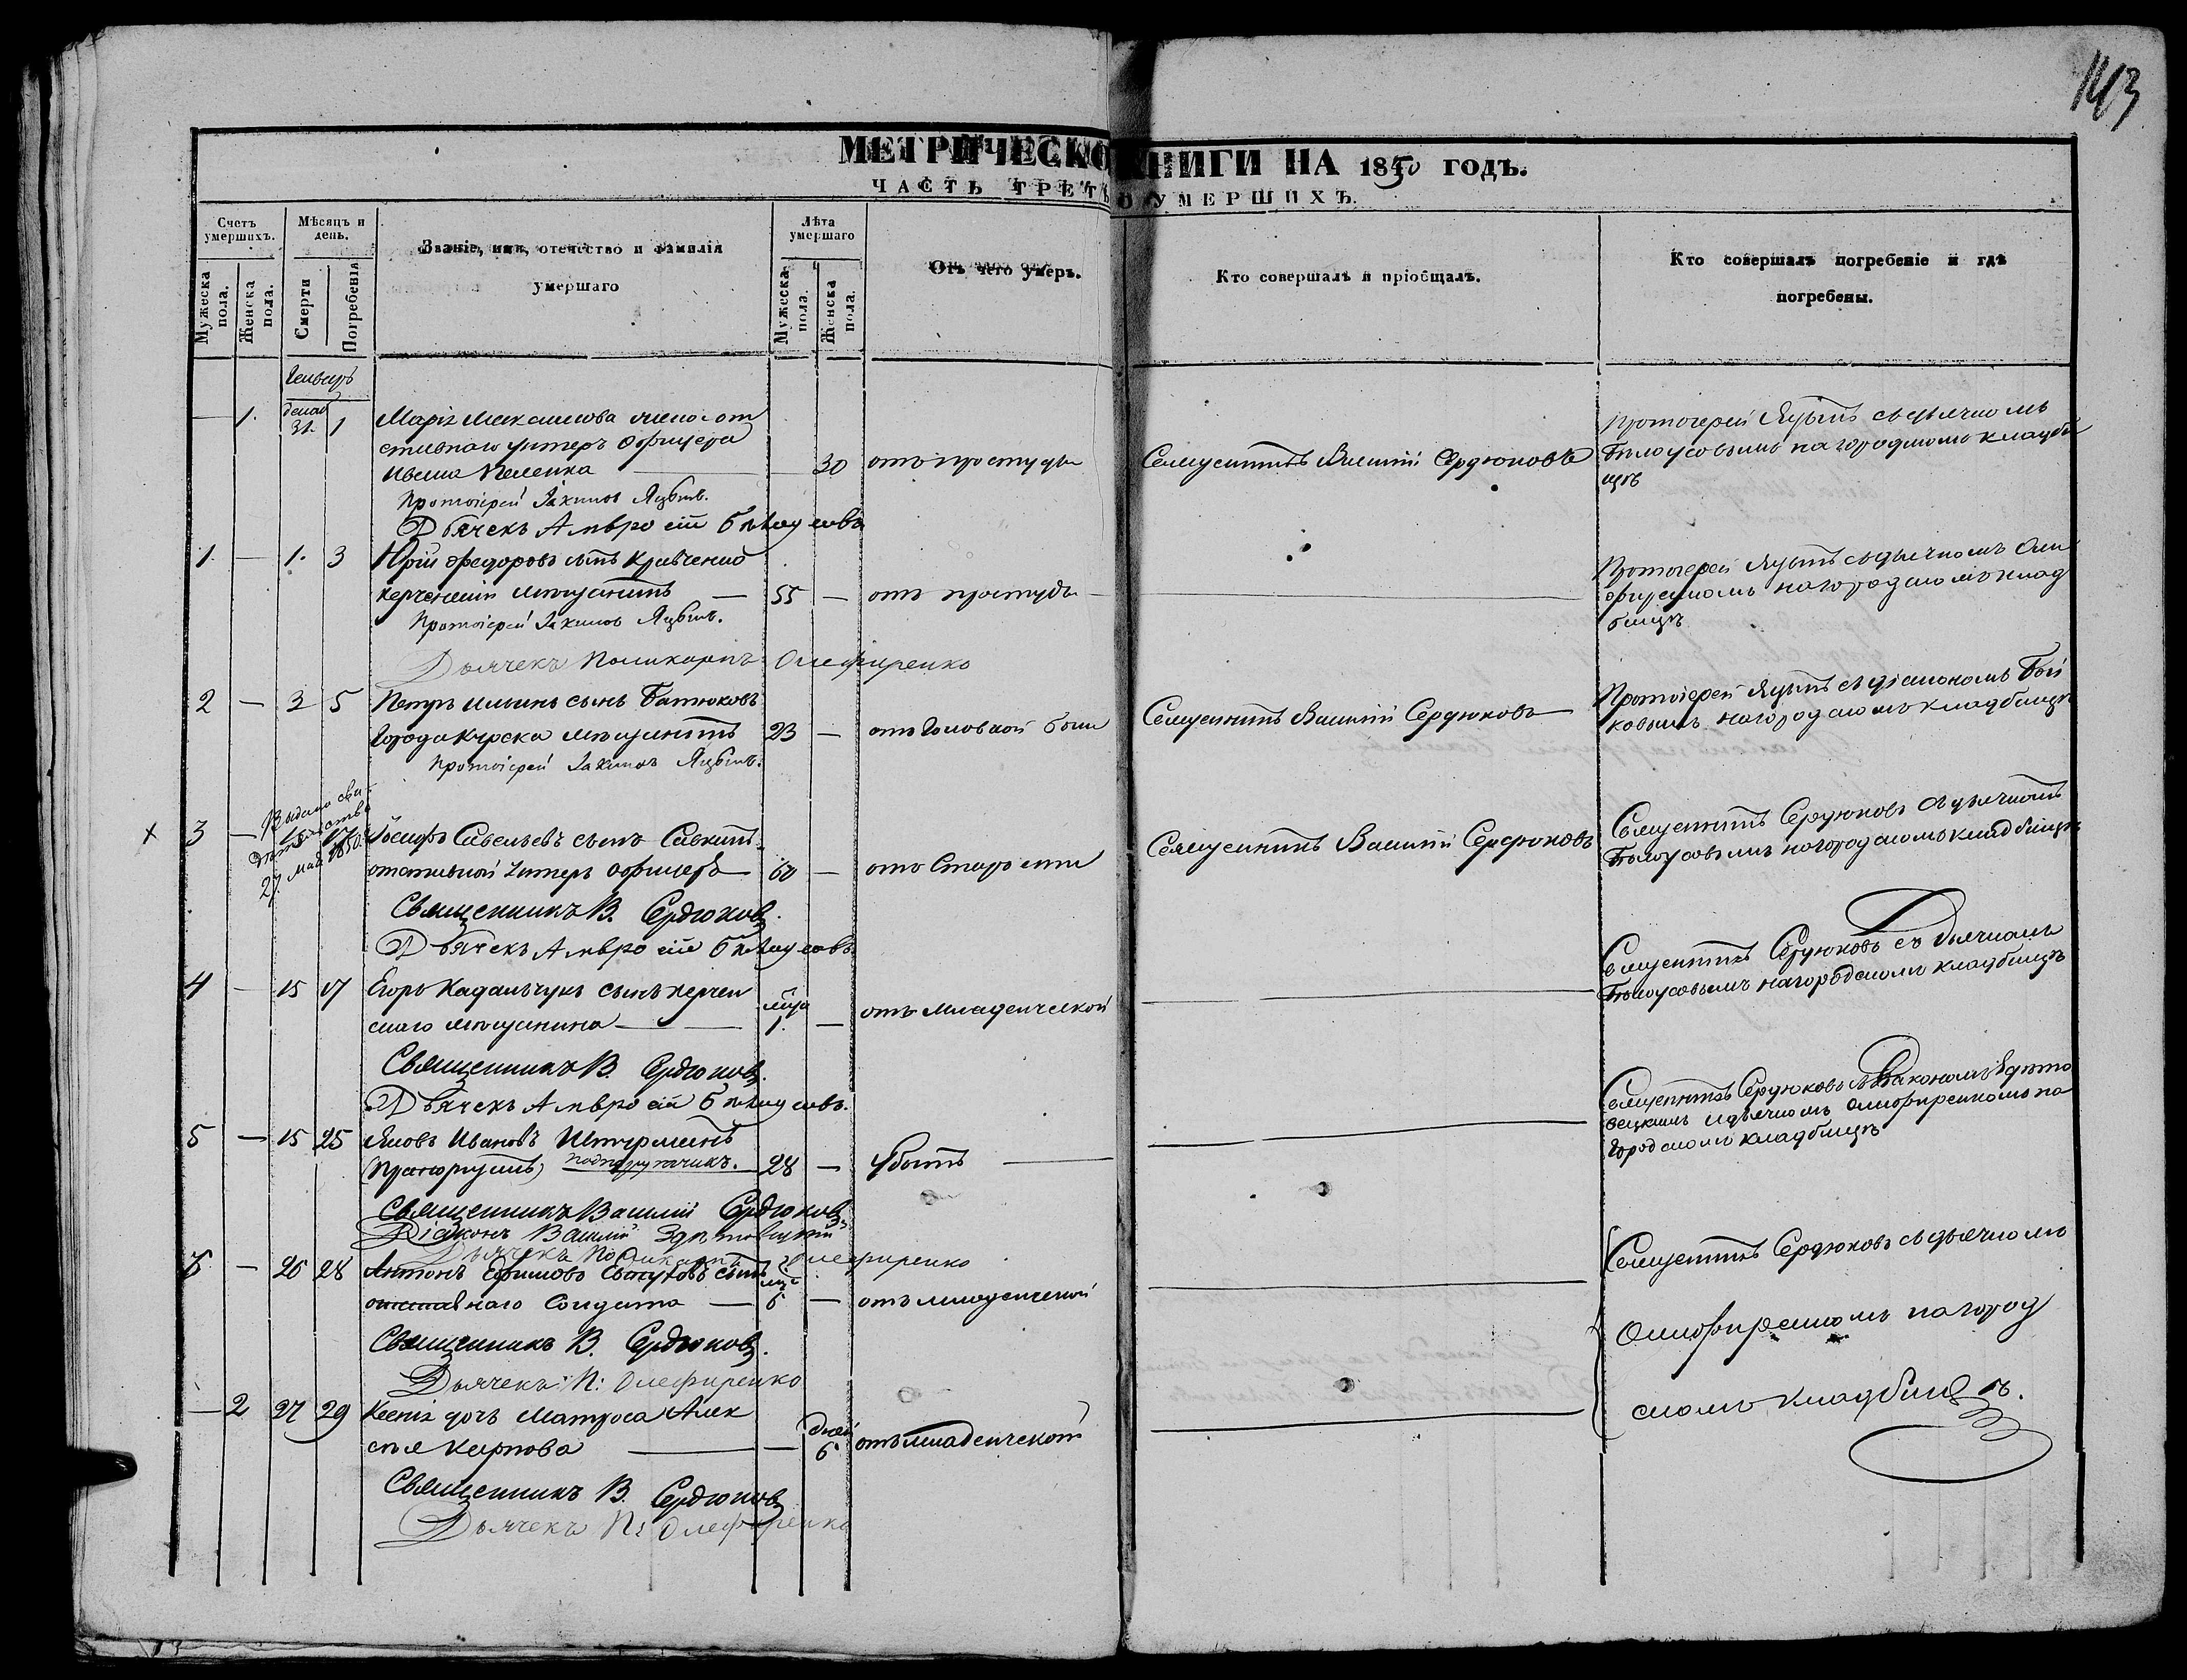 143
МЕТРИЧЕСКО КНИГИ НА 1850 ГОДЪ.
ЧАСТЬ ТРЕТЬ О УМЕРШИХЪ.
Счетъ умершихъ.
Мужеска пола.
Женска пола.
Мѣсяцъ и день.
Смерти
Погребенія
Званіе, имя, отечество и фамилія
умершаго
Лѣта умершаго
Мужеска пола.
Женска пола.
Отъ чего умеръ.
Кто совершалъ и пріобщалъ.
Кто совершалъ погребеніе и гдѣ
погребены.
Генварь
1. декаб 31. 1 Марія Максимова жена от
ставнаго унтеръ офицера
Ивана 30 отъ простуды Священникъ Василій Сердюковъ
Протоіерей Яцытъ съ дьячкомъ
Бѣлоусовымъ на городскомъ кладби
щѣ
Протоіерей Іакимъ
Дьячекъ Амвросій Бѣлоусовъ
1. — 1. 3 Юрій Федоровъ сынъ Кравченко
керченскій мѣщанинъ — 55 — отъ простуды —
Протоіерей съ дьячкомъ Оли
фиренкомъ на городскомъ клад
бищѣ
Протоіерей Іакимъ
Дьячекъ Поликарпъ Олефиренко
2 — 3 5 Петръ Ильинъ сынъ Батюковъ
города Курска мѣщанинъ 23 — отъ головной боли Священникъ Василій Сердюковъ —
Протоіерей съ діакономъ Бой
ковымъ на городскомъ кладбищѣ
Протоіерей Іакимъ
Выдано сви
дѣтельство
27 мая 1850.
х 3 — 15 17 Іосифъ Савельевъ сынъ
отставной унтеръ офицеръ — 60 — отъ старости Священникъ Василій Сердюковъ
Священникъ Сердюковъ съ дьячкомъ
Бѣлоусовымъ на городскомъ кладбищѣ
Священникъ В. Сердюковъ.
Дьячекъ Амвросій Бѣлоусовъ
4 — 15 17 Егоръ Кадальчукъ сынъ керчен
скаго мѣщанина — мца 1. — отъ младенческой —
Священникъ Сердюковъ съ дьячкомъ
Бѣлоусовымъ на городскомъ кладбищѣ
Священникъ В. Сердюковъ.
Дьячекъ Амвросій Бѣлоусовъ.
5 — 15 25 Яковъ Ивановъ
подпоручикъ. 28 — убитъ —
Священникъ Сердюковъ съ Діакономъ Здѣто
вецкимъ и дьячкомъ Олифиренкомъ на
городскомъ кладбищѣ
Священникъ Василій Сердюковъ
Діаконъ Василій Здѣтовецкій
Дьячекъ Поликарпъ Олефиренко
6 — 26 28 Антонъ Ефимовъ сынъ
отставнаго солдата — мц 6 — отъ младенческой —
Священникъ Сердюковъ съ дьячкомъ
Олифиренкомъ на город
скомъ кладбищѣ.
Священникъ В. Сердюковъ.
Дьячекъ П: Олефиренко
— 2 27 29 Ксенія дочь матроса Алек
сѣя Карпова — — дней 6 отъ младенческой —
Священникъ В. Сердюковъ
Дьячекъ П: Олефиренко